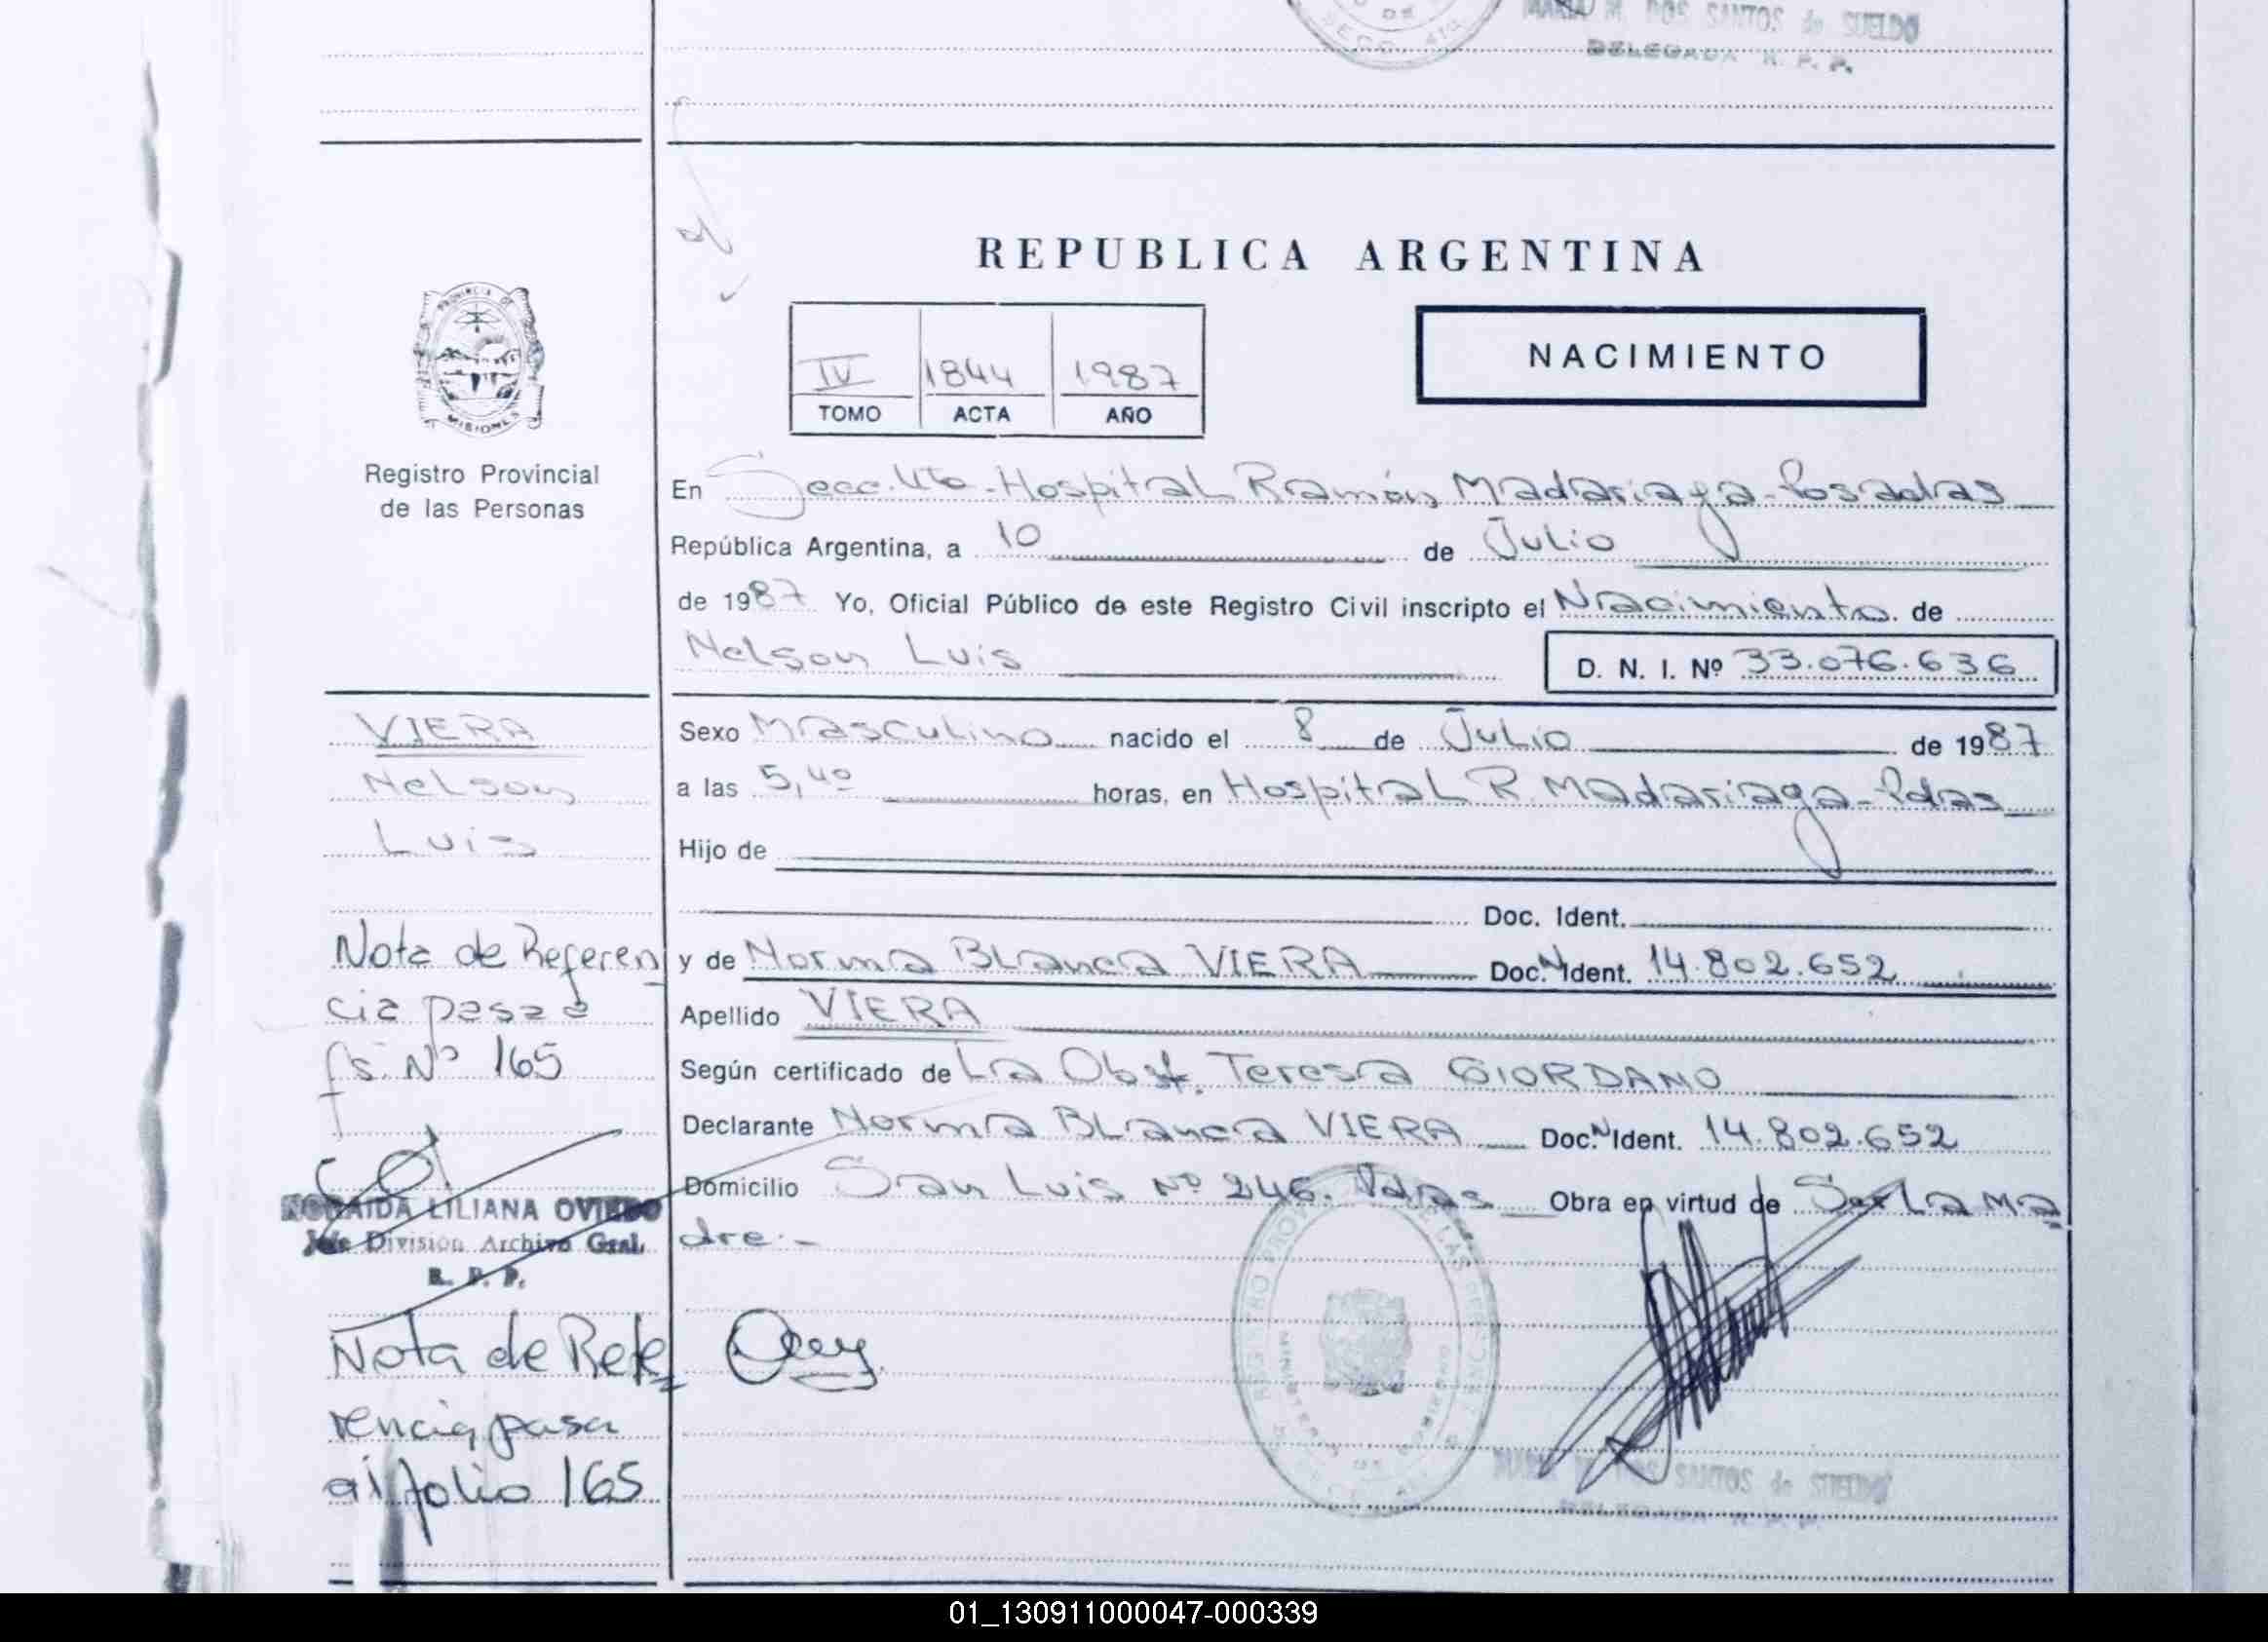 MARIA M. DOS SANTOS de SUELDO
DELEGADA R. P. P.
REPUBLICA ARGENTINA
PROVINCIA DE
MISIONES
Registro Provincial
de las Personas
IV 1844 1987
TOMO ACTA AÑO
NACIMIENTO
En Secc. 4ta - Hospital Ramón Madariaga - Posadas
República Argentina, a 10 de Julio
de 1987 Yo, Oficial Público de este Registro Civil inscripto el Nacimiento de
Nelson Luis D. N. I. Nº 33.076.636
VIERA
Nelson
Luis
Sexo Masculino nacido el 8 de Julio de 1987
a las 5,40 horas, en Hospital R. Madariaga - Pdas
Hijo de
Doc. Ident.
y de Norma Blanca VIERA Doc.N Ident. 14.802.652
Apellido VIERA
Según certificado de La Obst. Teresa GIORDANO
Declarante Norma Blanca VIERA Doc.N Ident. 14.802.652
Domicilio San Luis Nº 246. Pdas Obra en virtud de Ser La Ma
dre.-
Nota de Referen
cia pasa a
fs. Nº 165
LILIANA OVIEDO
Jefe División Archivo Gral.
R. P. P.
Nota de Refe
rencia pasa
al folio 165
MARIA M. DOS SANTOS de SUELDO
DELEGADA R. P. P.
01_130911000047-000339